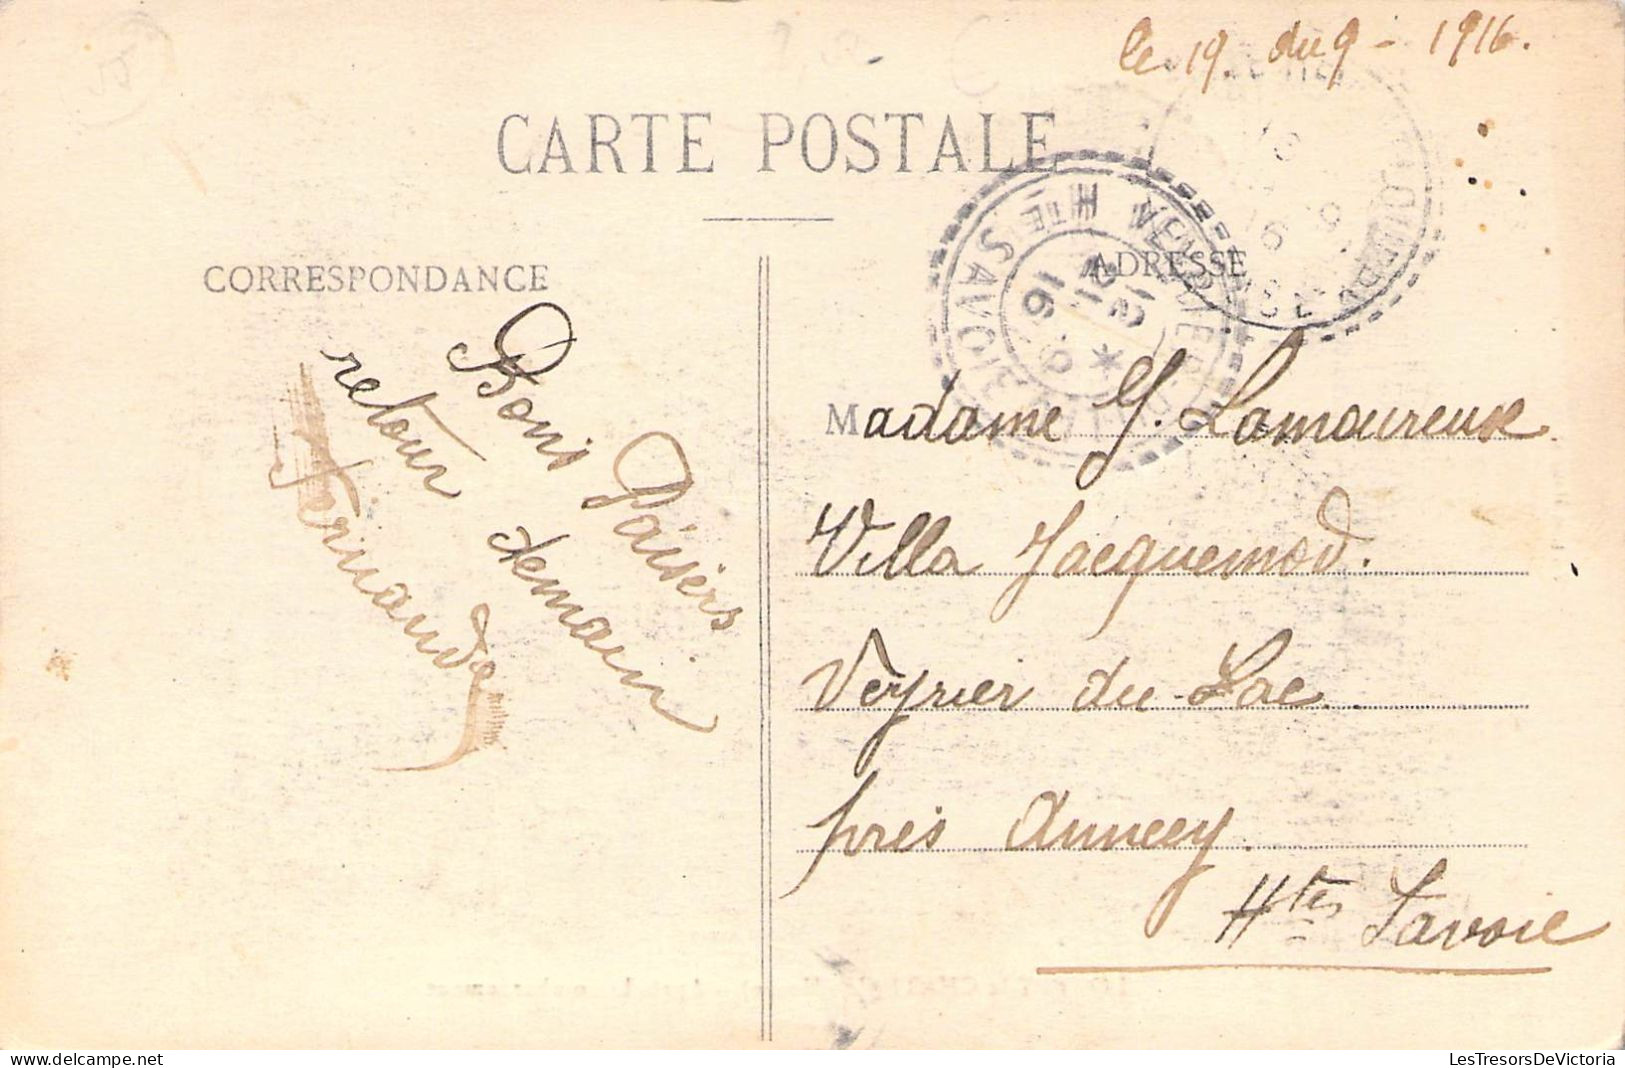 le 19. du 9 - 1916.
CARTE POSTALE
CORRESPONDANCE
ADRESSE
Bons Baisers
retour demain
Fernande
Madame Y. Lamoureux
Villa Jacquemod.
Veyrier du Lac.
près Annecy.
Htes Savoie
HTE SAVOIE
LesTresorsDeVictoria